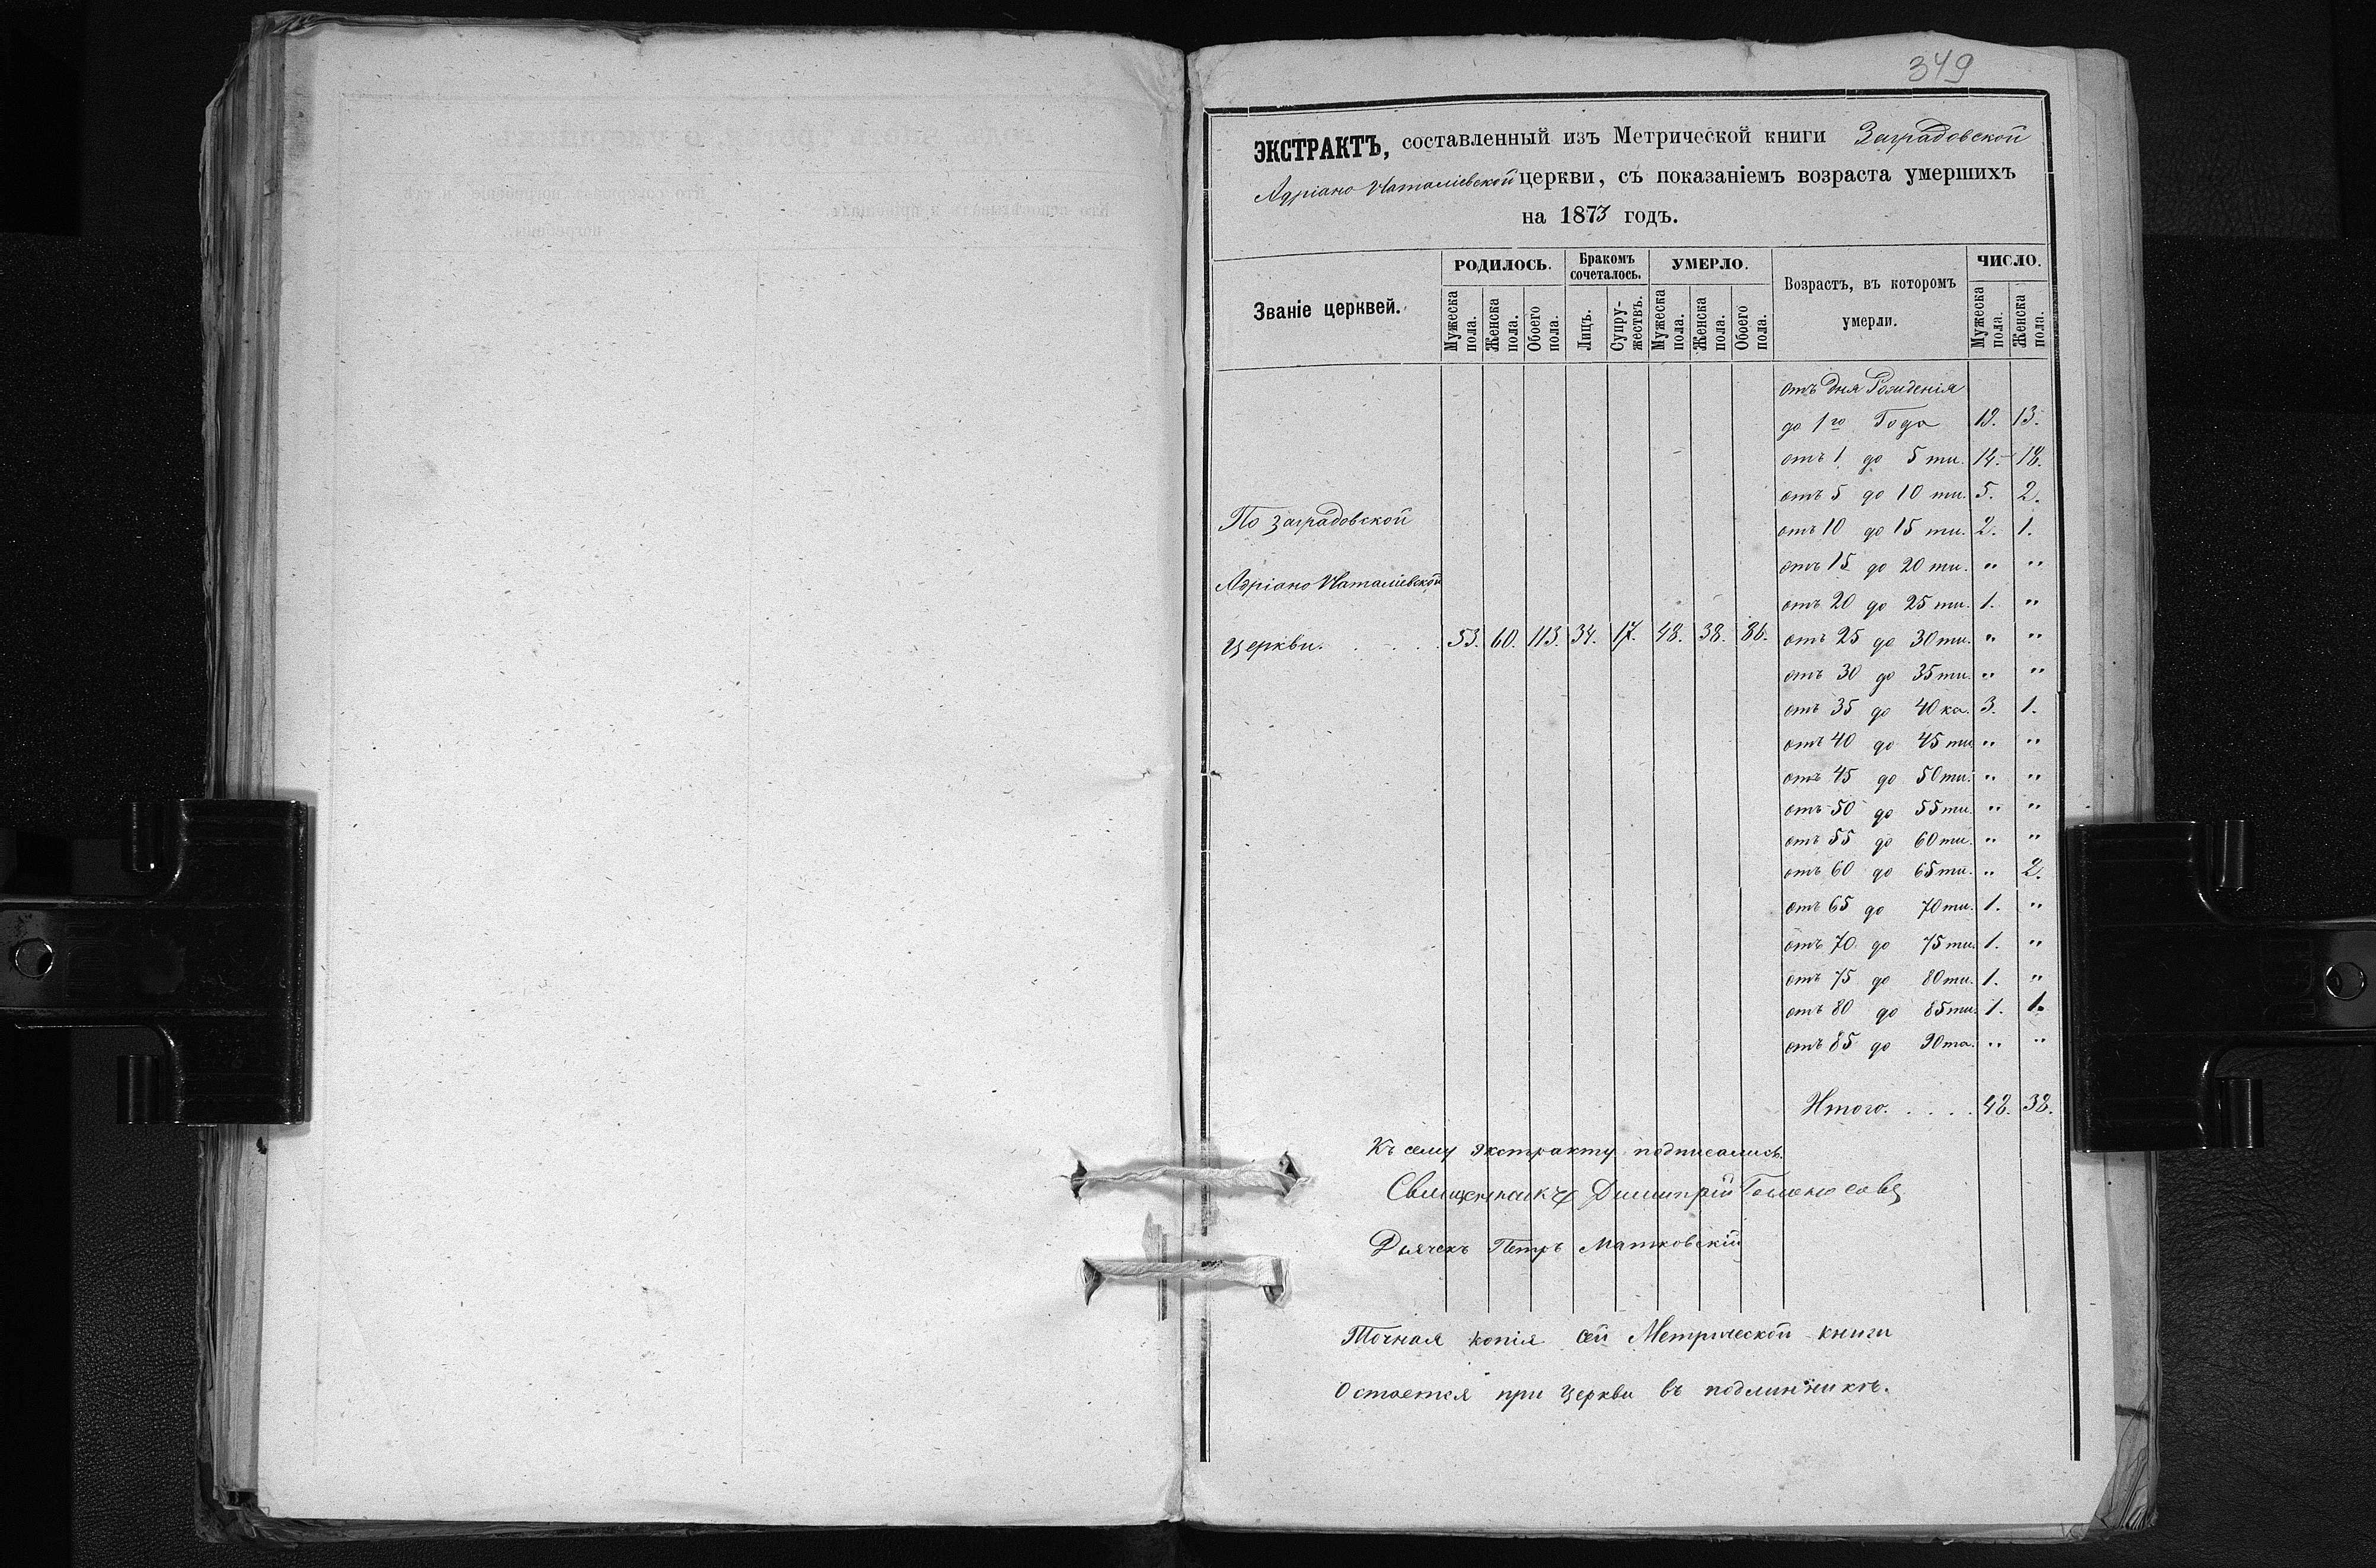 349
ЭКСТРАКТЪ, составленный изъ Метрической книги Заградовской
Адріано Наталіевской церкви, съ показаніемъ возраста умершихъ
на 1873 годъ.
Званіе церквей. РОДИЛОСЬ. Бракомъ сочеталось. УМЕРЛО. Возрастъ, въ которомъ умерли. ЧИСЛО.
Мужеска пола. Женска пола. Обоего пола. Лицъ. Супружествъ. Мужеска пола. Женска пола. Обоего пола. Мужеска пола. Женска пола.
отъ дня Рожденія
до 1го Года 19. 13.
отъ 1 до 5 ти. 14. 18.
отъ 5 до 10 ти. 5. 2.
По Заградовской
отъ 10 до 15 ти. 2. 1.
отъ 15 до 20 ти. " "
Адріано Наталіевской
отъ 20 до 25 ти. 1. "
Церкви. 53. 60. 113. 34. 17. 48. 38. 86. отъ 25 до 30 ти. " "
отъ 30 до 35 ти. " "
отъ 35 до 40 ка. 3. 1.
отъ 40 до 45 ти " "
отъ 45 до 50 ти. " "
отъ 50 до 55 ти. " "
отъ 55 до 60 ти. " "
отъ 60 до 65 ти. " 2.
отъ 65 до 70 ти. 1. "
отъ 70 до 75 ти. 1. "
отъ 75 до 80 ти. 1. "
отъ 80 до 85 ти. 1. 1.
отъ 85 до 90 та. " "
Итого. . . . . 48. 38.
Къ сему экстракту подписались.
Священникъ Димитрій
Дьячекъ Петръ Матковскій
Точная копія сей Метрической книги
Остается при Церкви въ подлинникѣ.